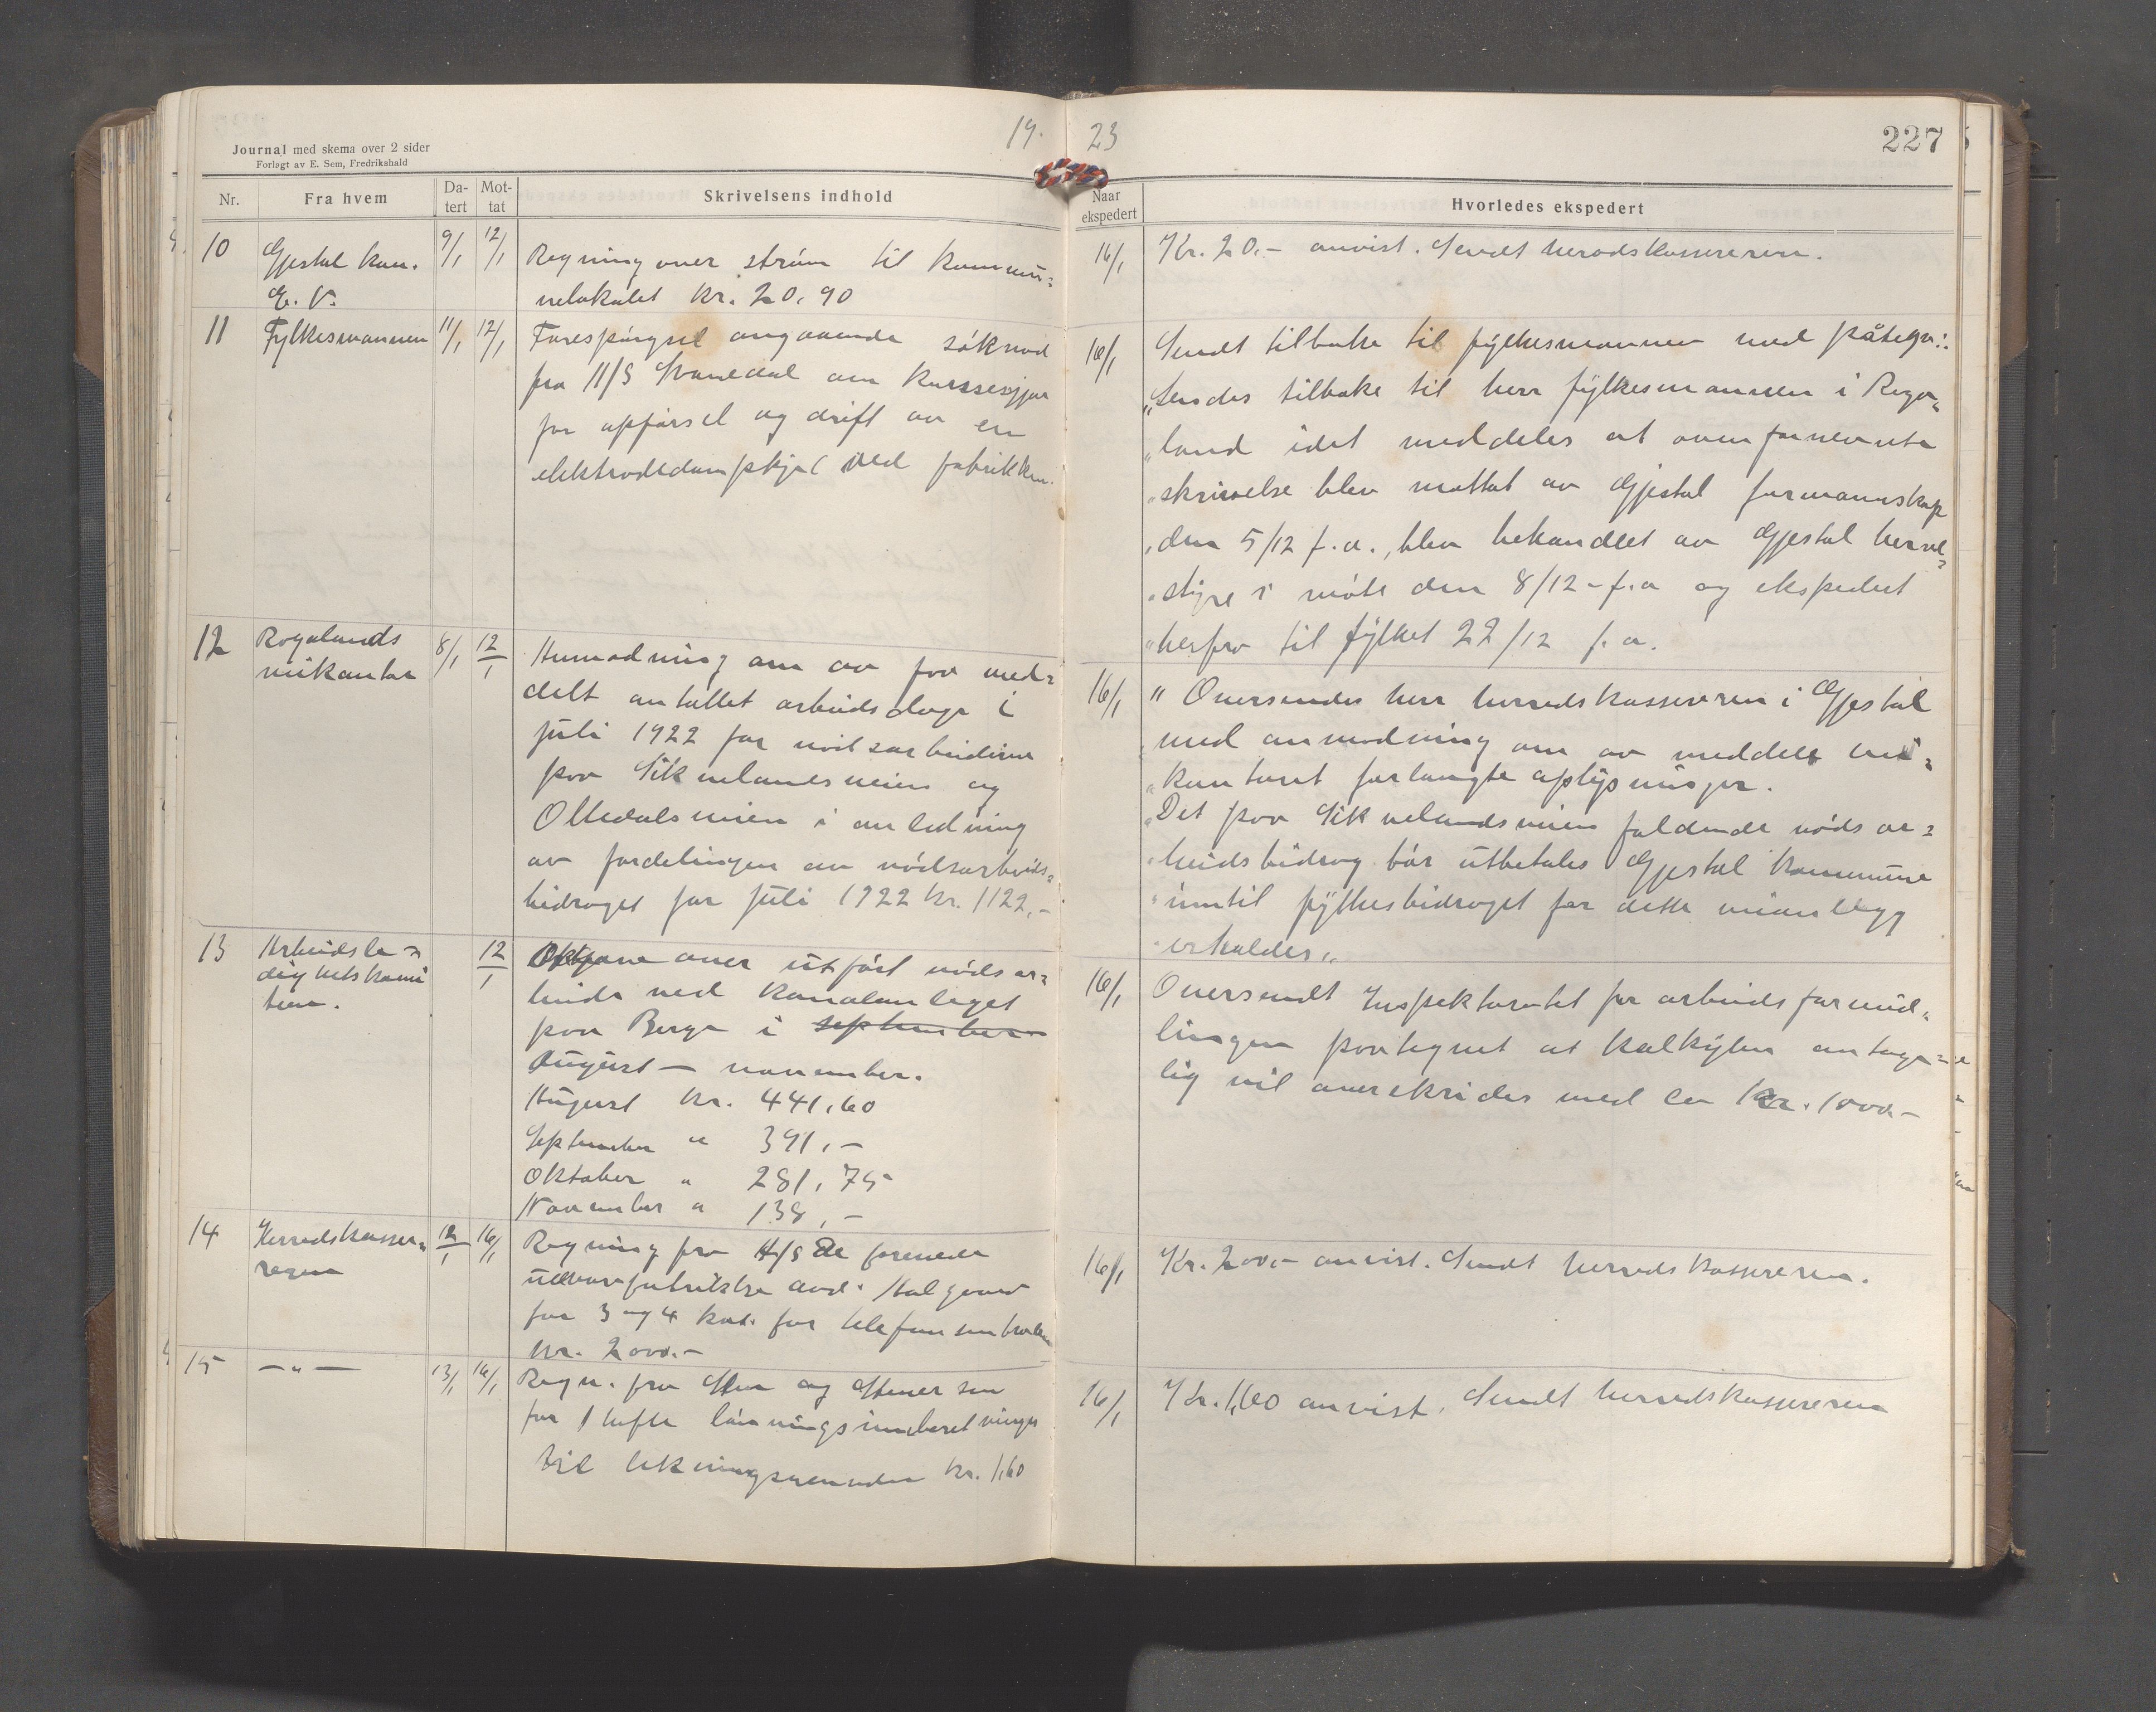 Journal med skema over 2 sider
Forlagt av E. Sem, Fredrikshald
19.
Nr.
Fra hvem
Da-
tert
Mot-
tat
Skrivelsens indhold
10
Gjestal kom.
E. V.
9/1
12/1
Regning over strøm til kommu-
nelokalet kr. 20,90
11
Fylkesmannen
11/1
12/1
Forespørgsel angaaende søknad
fra A/S Svanedal om
for opførsel og drift av en
elektrodedampkjel ved fabrikken.
12
Rogalands
veikontor
8/1
12/1
Anmodning om aa faa med-
delt antallet arbeidsdage i
juli 1922 for nødsarbeiderne
paa Sikvelandsveien og
Oltedalsveien i anledning
av fordelingen av nødsarbeids-
bidraget for juli 1922 kr. 1122,-
13
Arbeidsle-
dighetskomi
teen.
12/1
Opgave over utført nødsar-
beide ved kanalanlæget
paa Berge i september
August — november.
August kr. 441,60
September " 391,-
Oktober " 281,75
November " 138,-
14
Herredskasse-
reren
12/1
16/1
Regning fra A/S De forenede
uldvarefabrikker avd. Aalgaard
for 3 og 4 kvt. for telefonsentralen
kr. 200.-
15
— " —
13/1
16/1
Regn. fra Sem og Stenersen
for 1 hefte lønningsinnberetninger
til likningsnemnden kr. 1,60
23
227
Naar
ekspedert
Hvorledes ekspedert
16/1
Kr. 20.- anvist. Sendt herredskassereren.
16/1
Sendt tilbake til fylkesmannen med påtegn.:
"Sendes tilbake til herr fylkesmannen i Roga-
"land idet meddeles at ovenfornevnte
"skrivelse blev mottat av Gjestal formannskap
"den 5/12 f.a., blev behandlet av Gjestal herred-
"styre i møte den 8/12 - f.a og ekspedert
"herfra til fylket 22/12 f.a.
16/1
" Oversendes herr herredskassereren i Gjestal
"med anmodning om aa meddele vei-
"kontoret forlangte oplysninger.
"Det paa Sikvelandsveien faldende nødsar-
"beidsbidrag bør utbetales Gjestal kommune
"inntil fylkesbidraget for dette veianlegg
"erholdes"
16/1
Oversendt Inspektoratet for arbeidsformid-
lingen paategnet at kalkylen antage-
lig vil overskrides med ca kr. 1000.-
16/1
Kr. 200.- anvist. Sendt herredskassereren.
16/1
Kr. 1,60 anvist. Sendt herredskassereren